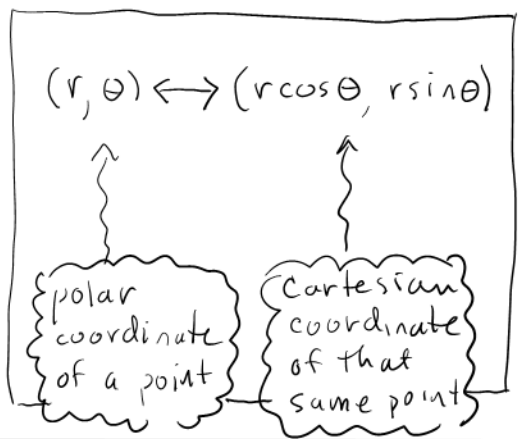 (r, θ) ↔ (r cos θ, r sin θ)
polar
coordinate
of a point
Cartesian
coordinate
of that
same point